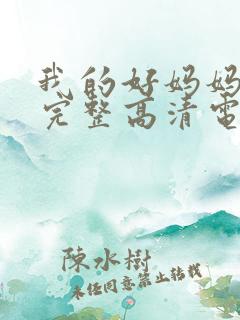 我的好妈妈
完整高清电
陳水樹
未经同意禁止转载